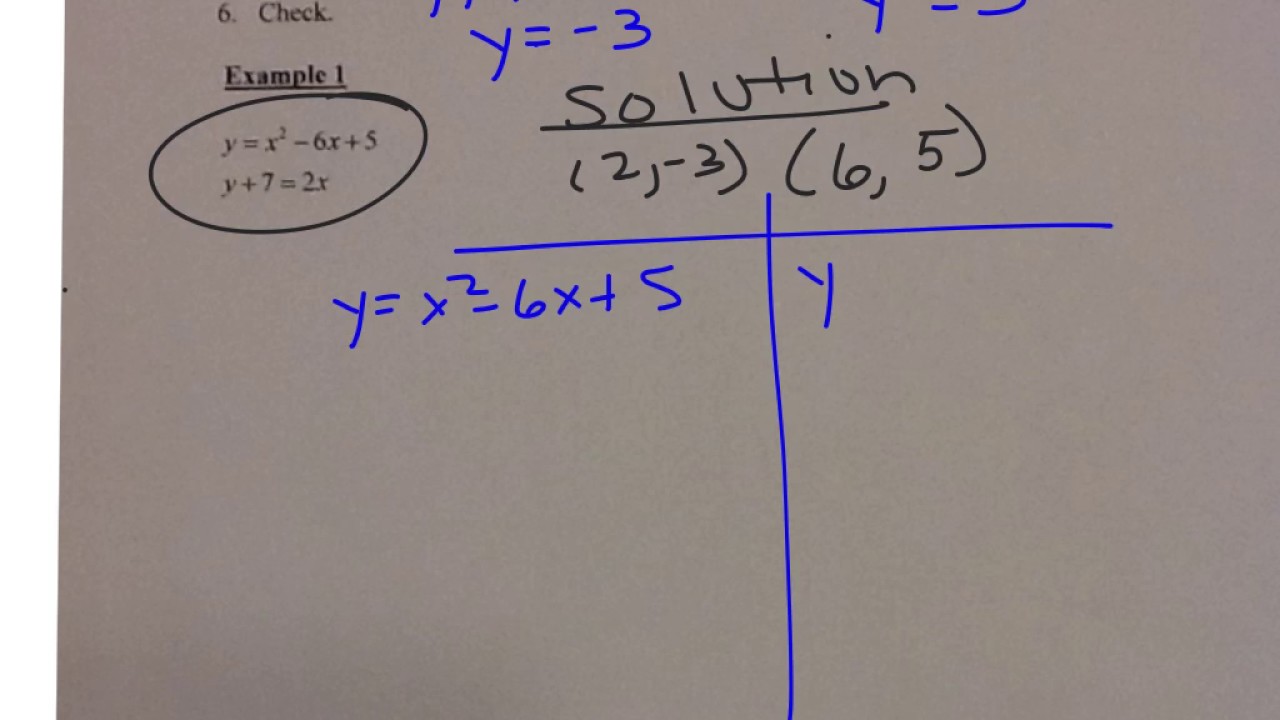 6. Check.
y = -3
Example 1
y = x² - 6x + 5
y + 7 = 2x
Solution
(2, -3) (6, 5)
y = x² - 6x + 5
y